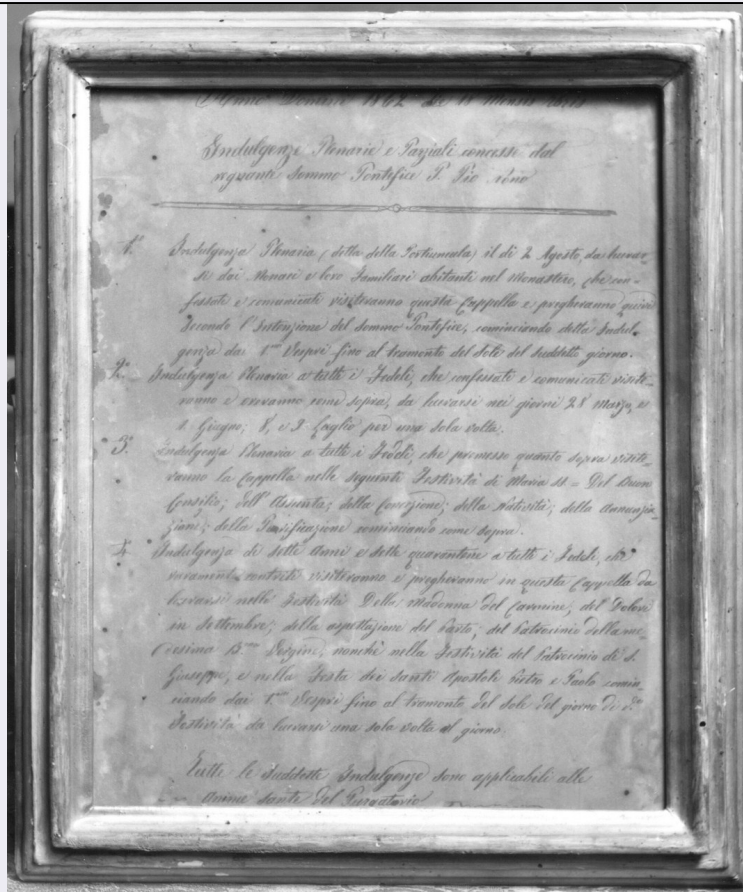 Anno Domini 1862 die 18 Mensis
Indulgenze Plenarie e Parziali concesse dal
regnante Sommo Pontefice P. Pio nono
1.° Indulgenza Plenaria (detta della Portiuncula) il di 2 Agosto, da lucrar-
si dai Monaci e loro Familiari abitanti nel Monastero, che con-
fessati e comunicati visiteranno questa Cappella e pregheranno quivi
secondo l'Intenzione del Sommo Pontefice, cominciando della Indul-
genza dai 1.mi Vespri fino al tramonto del Sole del suddetto giorno.
2.° Indulgenza Plenaria a tutti i Fedeli, che confessati e comunicati visite-
ranno e oreranno come sopra, da lucrarsi nei giorni 28 Marzo, e
1. Giugno; 8, e 9 Luglio per una sola volta.
3.° Indulgenza Plenaria a tutti i Fedeli, che premesso quanto sopra visite-
ranno la Cappella nelle seguenti Festività di Maria SS. = Del Buon
Consilio; dell'Assunta; della Concezione; della Natività; della Annunzia-
zione; della Purificazione cominciando come sopra.
4. Indulgenza di sette Anni e sette quarantine a tutti i Fedeli, che
veramente contriti visiteranno e pregheranno in questa Cappella da
lucrarsi nelle Festività Della Madonna del Carmine, del Dolore
in Settembre; della aspettazione del Parto; del Patrocinio della me-
desima B.ma Vergine, nonchè nella Festività del Patrocinio di S.
Giuseppe, e nella Festa dei Santi Apostoli Pietro e Paolo comin-
ciando dai 1.mi Vespri fino al tramonto del Sole del giorno di d.a
Festività da lucrarsi una sola volta al giorno.
Tutte le suddette Indulgenze sono applicabili alle
Anime Sante del Purgatorio